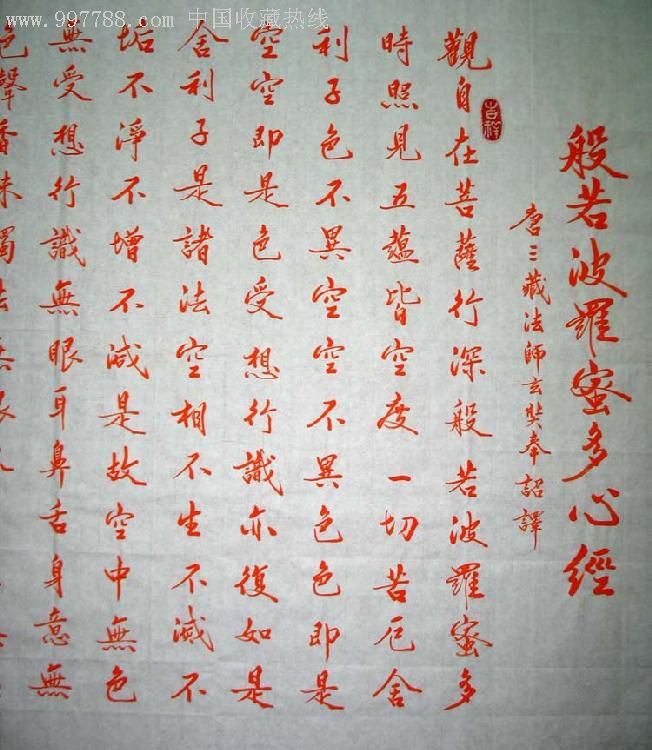 www.997788.com 中国收藏热线
般若波羅蜜多心經
唐三藏法師玄奘奉詔譯
吉祥
觀自在菩薩行深般若波羅蜜多
時照見五蘊皆空度一切苦厄舍
利子色不異空空不異色色即是
空空即是色受想行識亦復如是
舍利子是諸法空相不生不滅不
垢不淨不增不減是故空中無色
無受想行識無眼耳鼻舌身意無
色聲香味觸法無眼